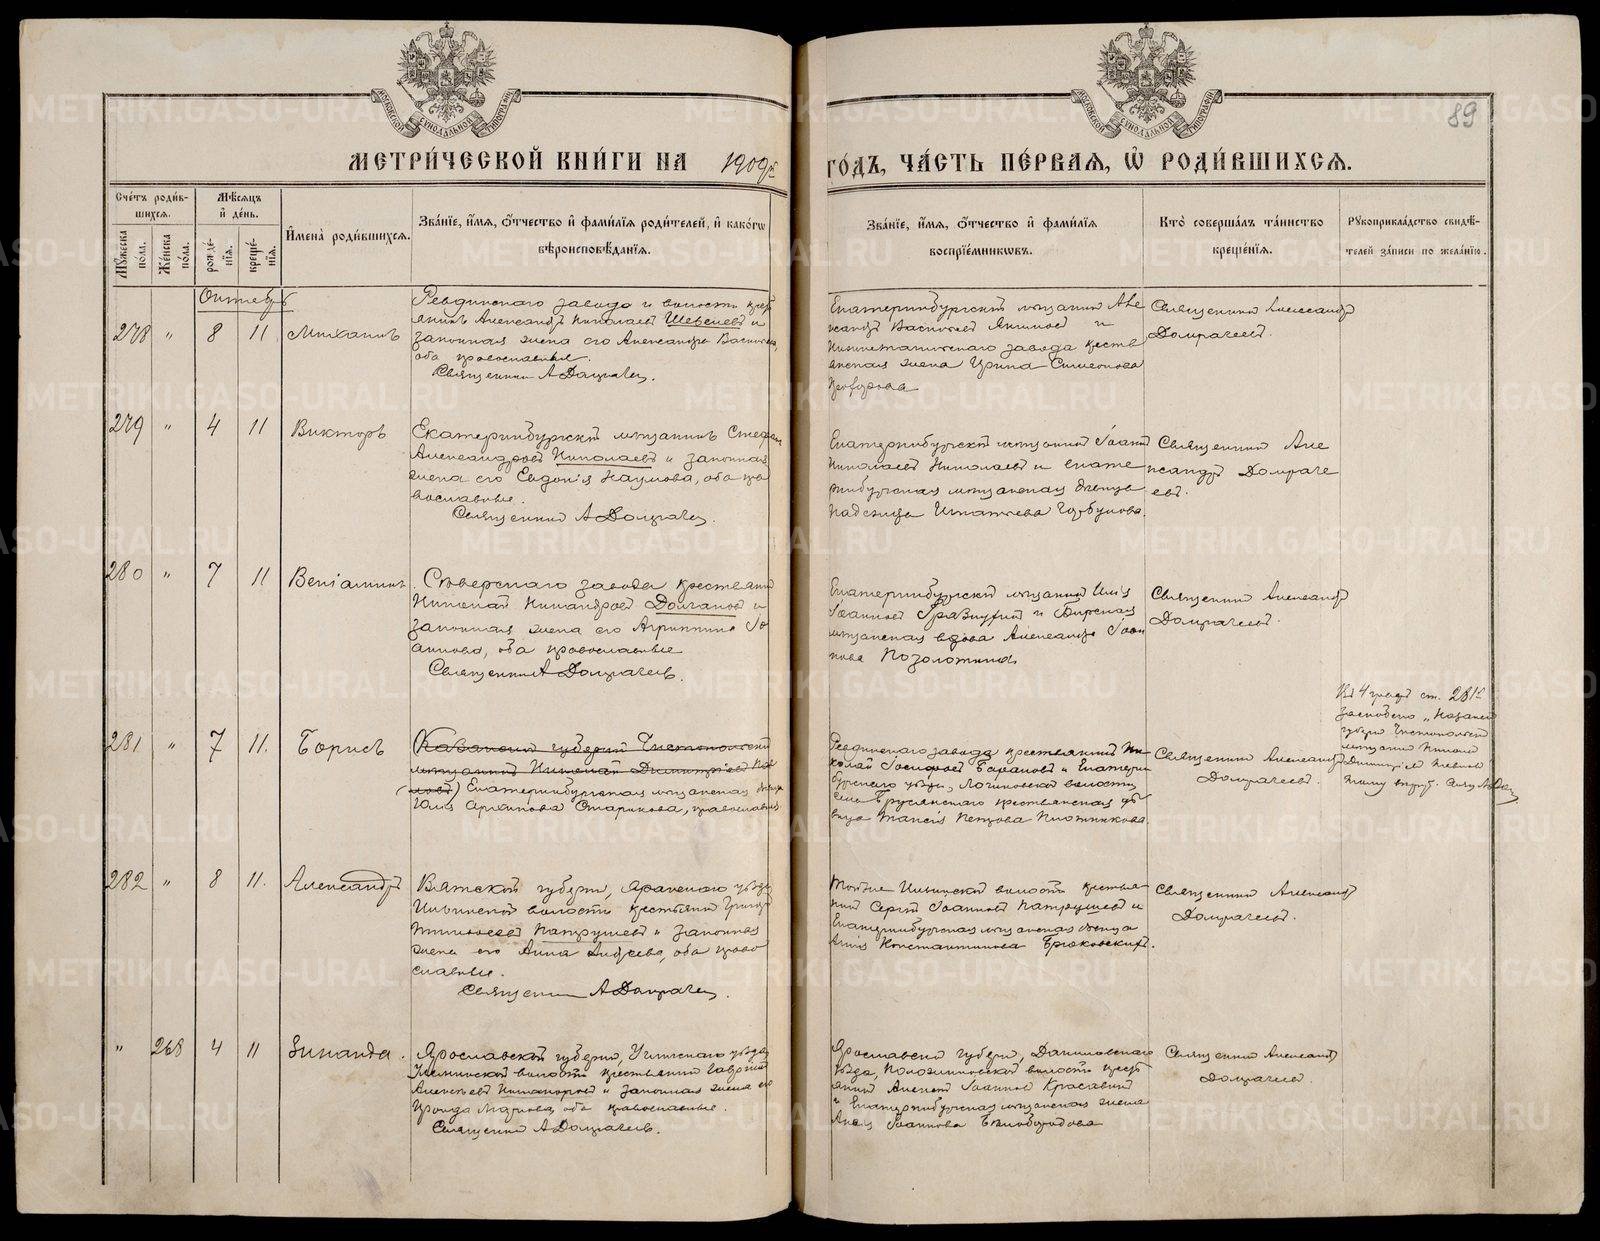 МЕТРИ́ЧЕСКОЙ КНИ́ГИ НА 1909
ГО́ДЪ, ЧА́СТЬ ПЕ́РВАЯ, Ѡ҆ РОДИ́ВШИХСЯ.
89
Сче́тъ роди́в-
шихся.
Мѣсяцъ
и҆ де́нь.
И҆мена̀ роди́вшихся.
Зва́нїе, и҆́мя, ѻ҆́тчество и҆ фами́лїя роди́телей, и҆ како́гѡ
вѣроисповѣ́данїя.
Мꙋ́жеска
по́ла.
Же́нска
по́ла.
рожде́-
нїя.
креще́-
нїя.
Зва́нїе, и҆́мя, ѻ҆́тчество и҆ фами́лїя
воспрїе́мникѡвъ.
Кто̀ соверша́лъ та́инство
креще́нїя.
Рꙋкоприкла́дство свидѣ́-
телей за́писи по жела́нїю.
Октябрь
278 " 8 11 Михаилъ
Ревдинскаго завода и волости крес
янинъ Александръ Николаевъ и
законная жена его Александра
оба православные.
Священникъ А Домрачевъ.
Екатеринбургскій мѣщанинъ Але
ксандръ Васильевъ и
завода кресть
янская жена Ирина Симеонова
Священникъ Александръ
Домрачеевъ.
279 " 4 11 Викторъ
Екатеринбургскій мѣщанинъ Стефанъ
Александровъ Николаевъ и законная
жена его Евдокія Наумова, оба пра
вославные.
Священникъ А Домрачевъ.
Екатеринбургскій мѣщанинъ Іоаннъ
Николаевъ Николаевъ и Екате
ринбургская мѣщанская дѣвица
Надежда Игнатьева Горбунова.
Священникъ Але
ксандръ Домраче
евъ.
280 " 7 11 Веніаминъ
Сѣверскаго завода крестьянинъ
Николай Никандровъ Долгановъ и
законная жена его Агриппина Іо
аннова, оба православные
Священникъ А Домрачеевъ.
Екатеринбургскій мѣщанинъ Илія
Іоанновъ и Бирская
мѣщанская вдова Александра Іоан
нова Позолотина
Священникъ Александръ
Домрачеевъ.
281 " 7 11. Борисъ
Казанской губерніи Чистопольскій
мѣщанинъ Николай Димитріевъ Пав
ловъ) Екатеринбургская мѣщанская дѣвица
Юлія Архипова Старикова, православная
Ревдинскаго завода крестьянинъ Ни-
колай Іосифовъ Барановъ и Екатерин
бургскаго уѣзда, Логиновской волости,
села Бруснянскаго крестьянская дѣ
вица Таисія Петрова Плотникова.
Священникъ Александръ
Домрачеевъ.
Въ 4 графѣ ст. 281й
зачеркнуто "Казанск
губерн Чистопольскій
мѣщанинъ Никол
Димитріевъ Павловъ
282 " 8 11. Александръ
Вятской губерніи, Яранскаго уѣзда
Ильинской волости крестьянинъ Григор
Тимоѳеевъ Патрушевъ и законная
жена его Анна Андреева, оба право
славные.
Священникъ А Домрачевъ.
Тойже Ильинской волости крестья
нинъ Сергій Іоанновъ Патрушевъ и
Екатеринбургская мѣщанская дѣвица
Анна Константинова
Священникъ Александръ
Домрачеевъ.
" 268 4 11 Зинаида.
Ярославской губерніи, Угличскаго уѣзда,
волости крестьянинъ Гавріилъ
Алексѣевъ Никаноровъ и законная жена его
Ираида Маркова, оба православные.
Священникъ А Домрачеевъ.
Ярославской губерніи, Даниловскаго
уѣзда, волости крест
янинъ Алексѣй Іоанновъ Красавинъ
и Екатеринбургская мѣщанская жена
Анна Іоаннова Бѣлобородова
Священникъ Александръ
Домрачеевъ.
METRIKI.GASO-URAL.RU